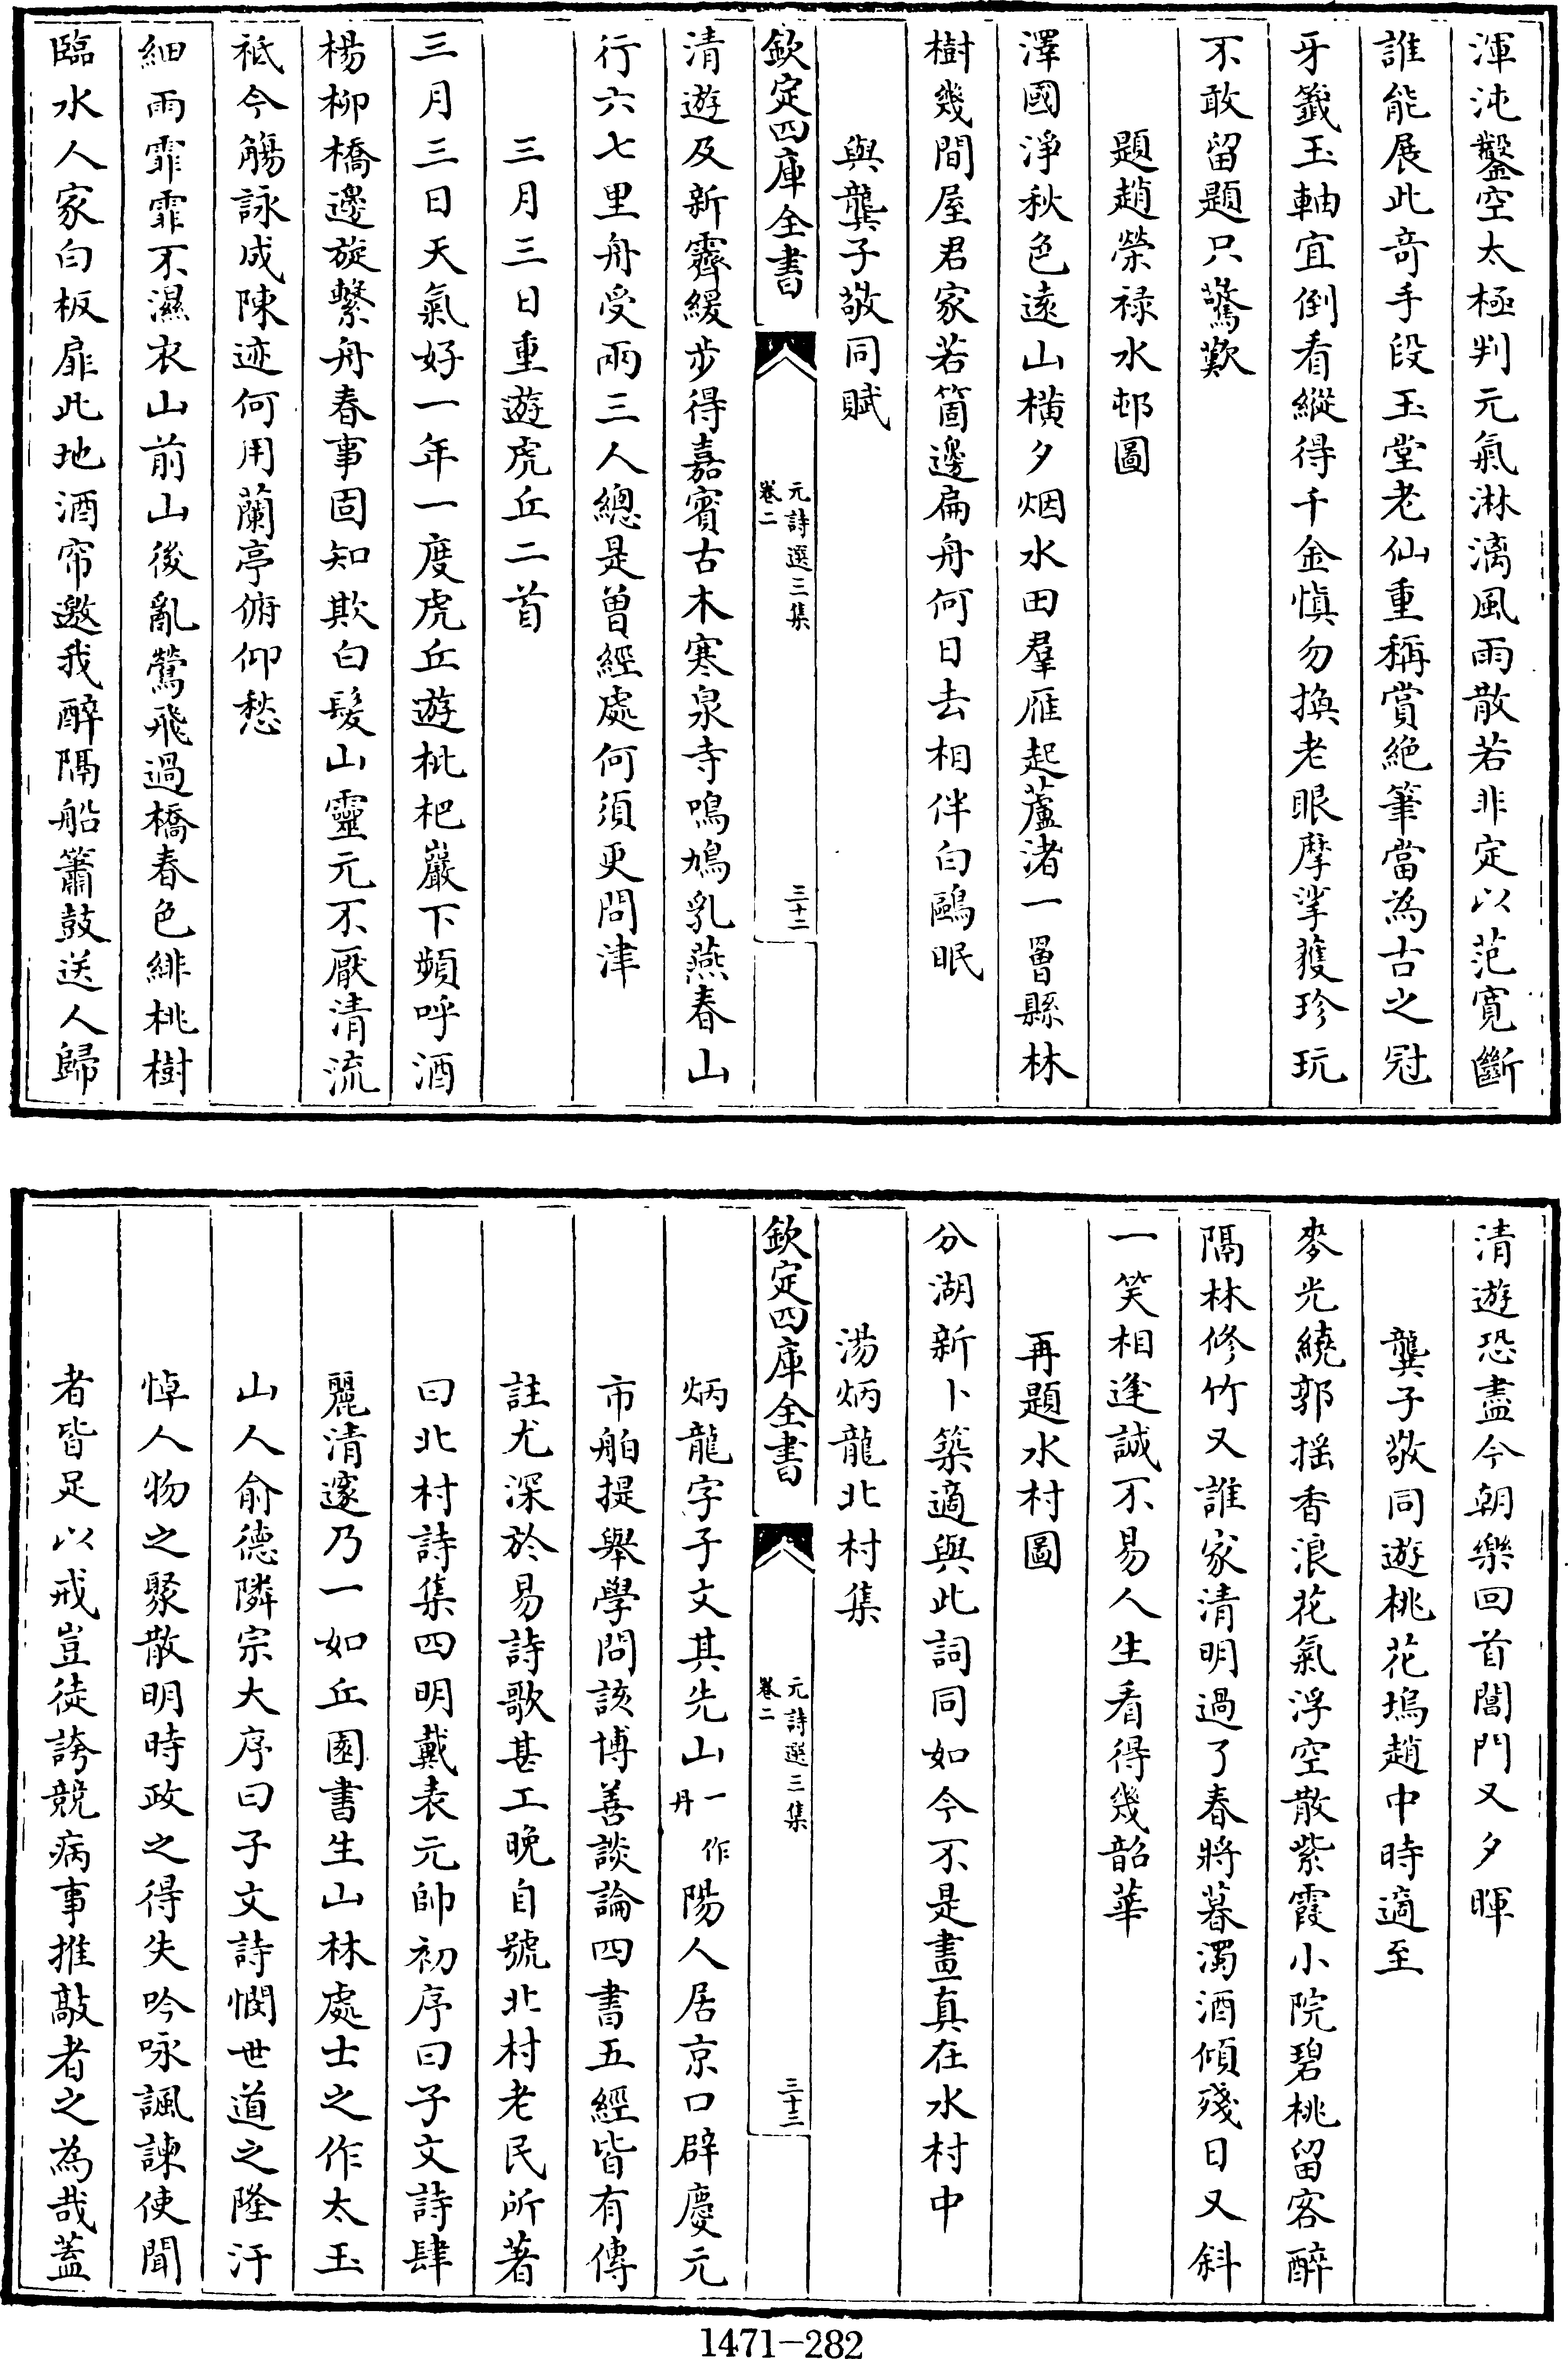 渾沌鑿空太極判元氣淋漓風雨散若非定以范寛斷
誰能展此奇手段玉堂老仙重稱賞絶筆當為古之冠
牙籤玉軸宜倒看縱得千金慎勿換老眼摩挲獲珍玩
不敢留題只驚歎
題趙榮禄水邨圖
澤國淨秋色遠山橫夕烟水田羣雁起蘆渚一罾縣林
樹幾間屋君家若箇邊扁舟何日去相伴白鷗眠
與龔子敬同賦
欽定四庫全書
元詩選三集
卷二
三十二
清遊及新霽緩步得嘉賓古木寒泉寺鳴鳩乳燕春山
行六七里舟受兩三人總是曽經處何須更問津
三月三日重遊虎丘二首
三月三日天氣好一年一度虎丘遊枇杷巖下頻呼酒
楊柳橋邊旋繫舟春事固知欺白髮山靈元不厭清流
祗今觴詠成陳迹何用蘭亭俯仰愁
細雨霏霏不濕衣山前山後亂鶯飛過橋春色緋桃樹
臨水人家白板扉此地酒帘邀我醉隔船簫鼓送人歸
清遊恐盡今朝樂回首閶門又夕暉
龔子敬同遊桃花塢趙中時適至
麥光繞郭揺香浪花氣浮空散紫霞小院碧桃留客醉
隔林修竹又誰家清明過了春將暮濁酒傾殘日又斜
一笑相逢誠不易人生看得幾韶華
再題水村圖
分湖新卜築適與此詞同如今不是畫真在水村中
湯炳龍北村集
欽定四庫全書
元詩選三集
卷二
三十三
炳龍字子文其先山一作丹陽人居京口辟慶元
市舶提舉學問該博善談論四書五經皆有傳
註尤深於易詩歌甚工晚自號北村老民所著
曰北村詩集四明戴表元帥初序曰子文詩肆
麗清邃乃一如丘園書生山林處士之作太玉
山人俞德隣宗大序曰子文詩憫世道之隆汙
悼人物之聚散明時政之得失吟咏諷諫使聞
者皆足以戒豈徒誇競病事推敲者之為哉蓋
1471-282